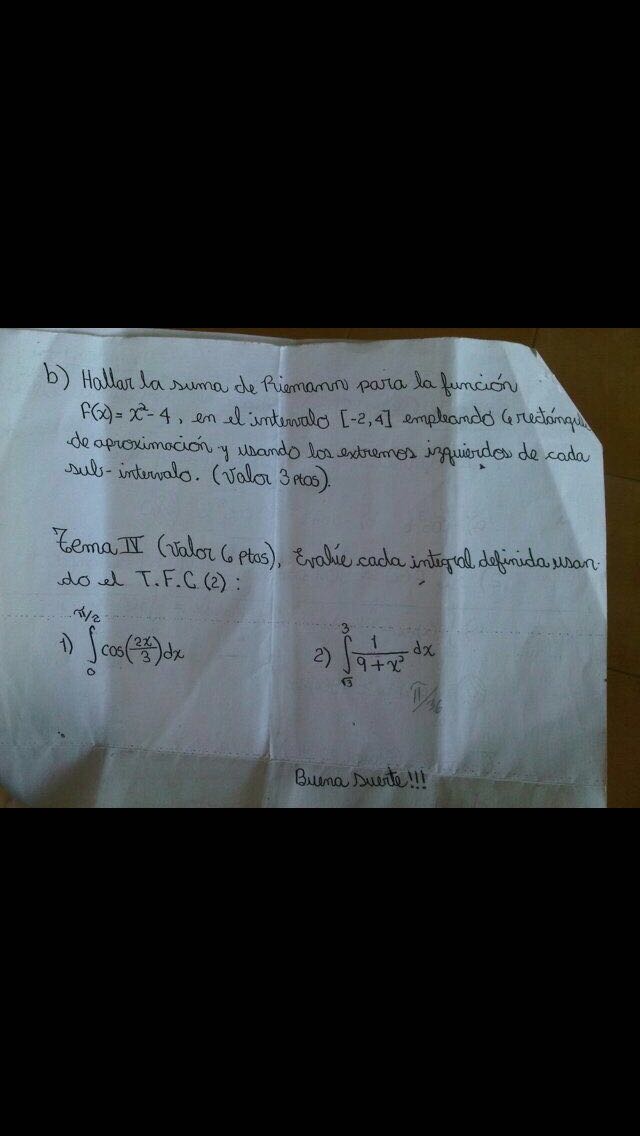 b) Hallar la suma de Riemann para la función
f(x) = x² - 4, en el intervalo [-2,4] empleando 6 rectángul
de aproximación y usando los extremos izquierdos de cada
sub-intervalo. (Valor 3 ptos).
Tema IV (Valor 6 ptos), Evalúe cada integral definida usan-
do el T.F.C.(2) :
1) ∫₀^{π/2} cos(2x/3) dx 2) ∫_{√3}^{3} 1/(9+x²) dx
π/36
Buena suerte!!!